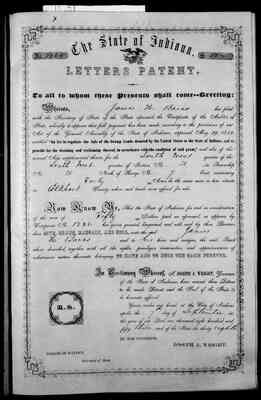 The State of Indiana.
LETTERS PATENT.
To all to whom these Presents shall come--Greeting:
Whereas, James H. has filed
with the Secretary of State of the State aforesaid the Certificate of the Auditor of
State, whereby it appears that full payment has been made according to the provisions of an
Act of the General Assembly of the State of Indiana, approved May 29, 1852,
entitled "An Act to regulate the Sale of the Swamp Lands donated by the United States to the State of Indiana, and to
provide for the draining and reclaiming thereof, in accordance with the condition of said grant," and also of the
several Acts supplemental thereto for the South West quarter of the
South West quarter of Section
North, of Range East, containing
Forty Acres in the same more or less, situate in
Elkhart County, when said lands were offered for sale.
Now Know Ye, That the State of Indiana for and in consideration
of the sum of Fifty Dollars paid as aforesaid, as appears by
Certificate No. has given granted bargained and sold and by these Presents
does GIVE, GRANT, BARGAIN, AND SELL, unto the said James
H. and to his heirs and assigns, the said Tract
above described, together with all the rights privileges immunities and appurtenances of
whatsoever nature thereunto belonging TO HAVE AND TO HOLD THE SAME FOREVER.
In Testimony Whereof, I, JOSEPH A. WRIGHT, Governor
of the State of Indiana, have caused these Letters
to be made Patent and the Seal of the State to
be hereunto affixed.
Given under my hand, at the City of Indianapolis
upon the day of September in
the year of our Lord one thousand eight hundred and
fifty and of the State the thirty eighth
BY THE GOVERNOR,
JOSEPH A. WRIGHT.
Secretary of State.